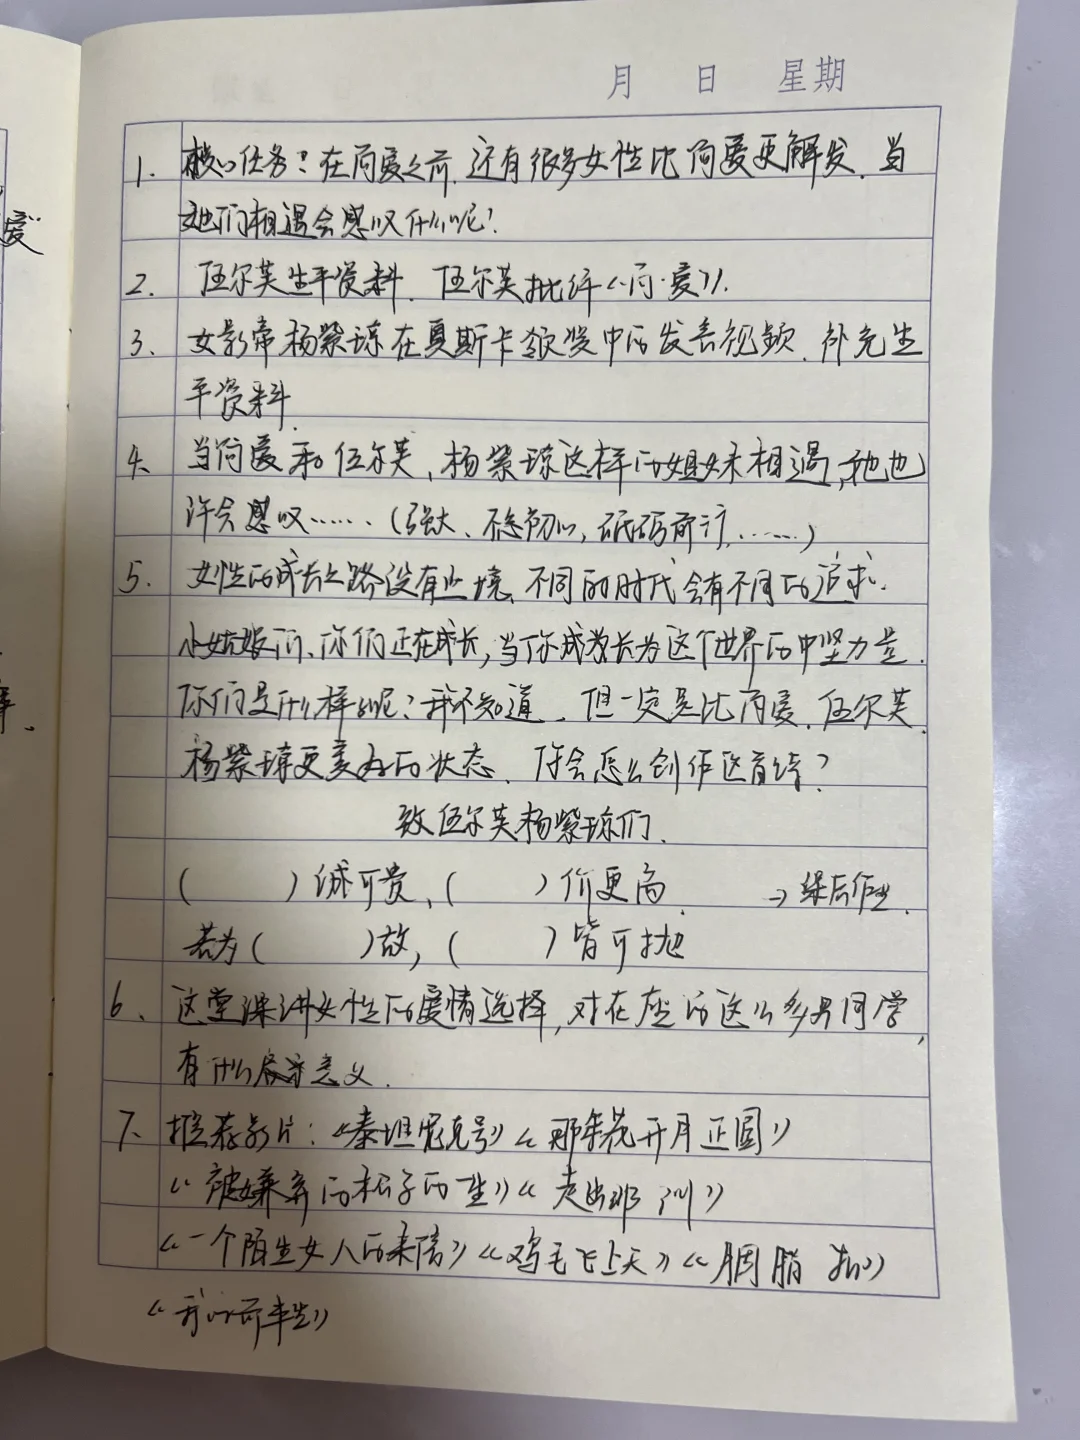 月 日 星期
1. 核心任务:在简爱之前,还有很多女性比简爱更解发,当
她们相遇会感叹什么呢?
2. 伍尔芙生平资料,伍尔芙批评《简·爱》.
3. 女影帝杨紫琼在奥斯卡领奖中的发言视频,补充生
平资料.
4、当简爱和伍尔芙,杨紫琼这样的姐妹相遇,她也
许会感叹……(强大、不忘初心,砥砺前行,……)
5. 女性的成长之路没有止境、不同的时代会有不同的追求.
小姑娘们、你们正在成长,当你成长为这个世界的中坚力量.
你们是什么样的呢?我不知道,但一定是比简爱、伍尔芙
杨紫琼更美好的状态,你会怎么创作这首诗?
致伍尔芙杨紫琼们.
( )诚可贵,( )价更高. →课后作业.
若为( )故,( )皆可抛
6、这堂课讲女性的爱情选择,对在座的这么多男同学,
有什么启示意义.
7、推荐影片:《泰坦尼克号》《那年花开月正圆》
《被嫌弃的松子的一生》《走出那》
《一个陌生女人的来信》《鸡毛飞上天》《胭脂扣》
《我的前半生》
爱